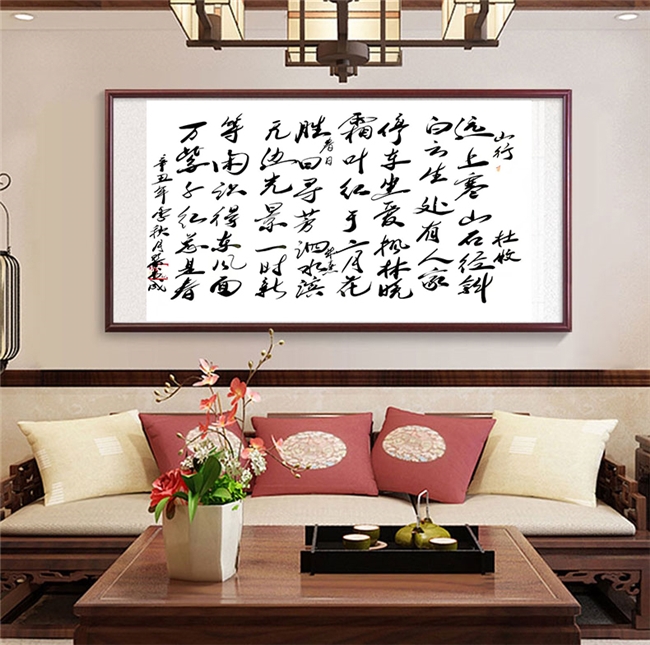 山行 杜牧
远上寒山石径斜
白云生处有人家
停车坐爱枫林晚
霜叶红于二月花
春日 朱熹
胜日寻芳泗水滨
无边光景一时新
等闲识得东风面
万紫千红总是春
辛丑年季秋月 成